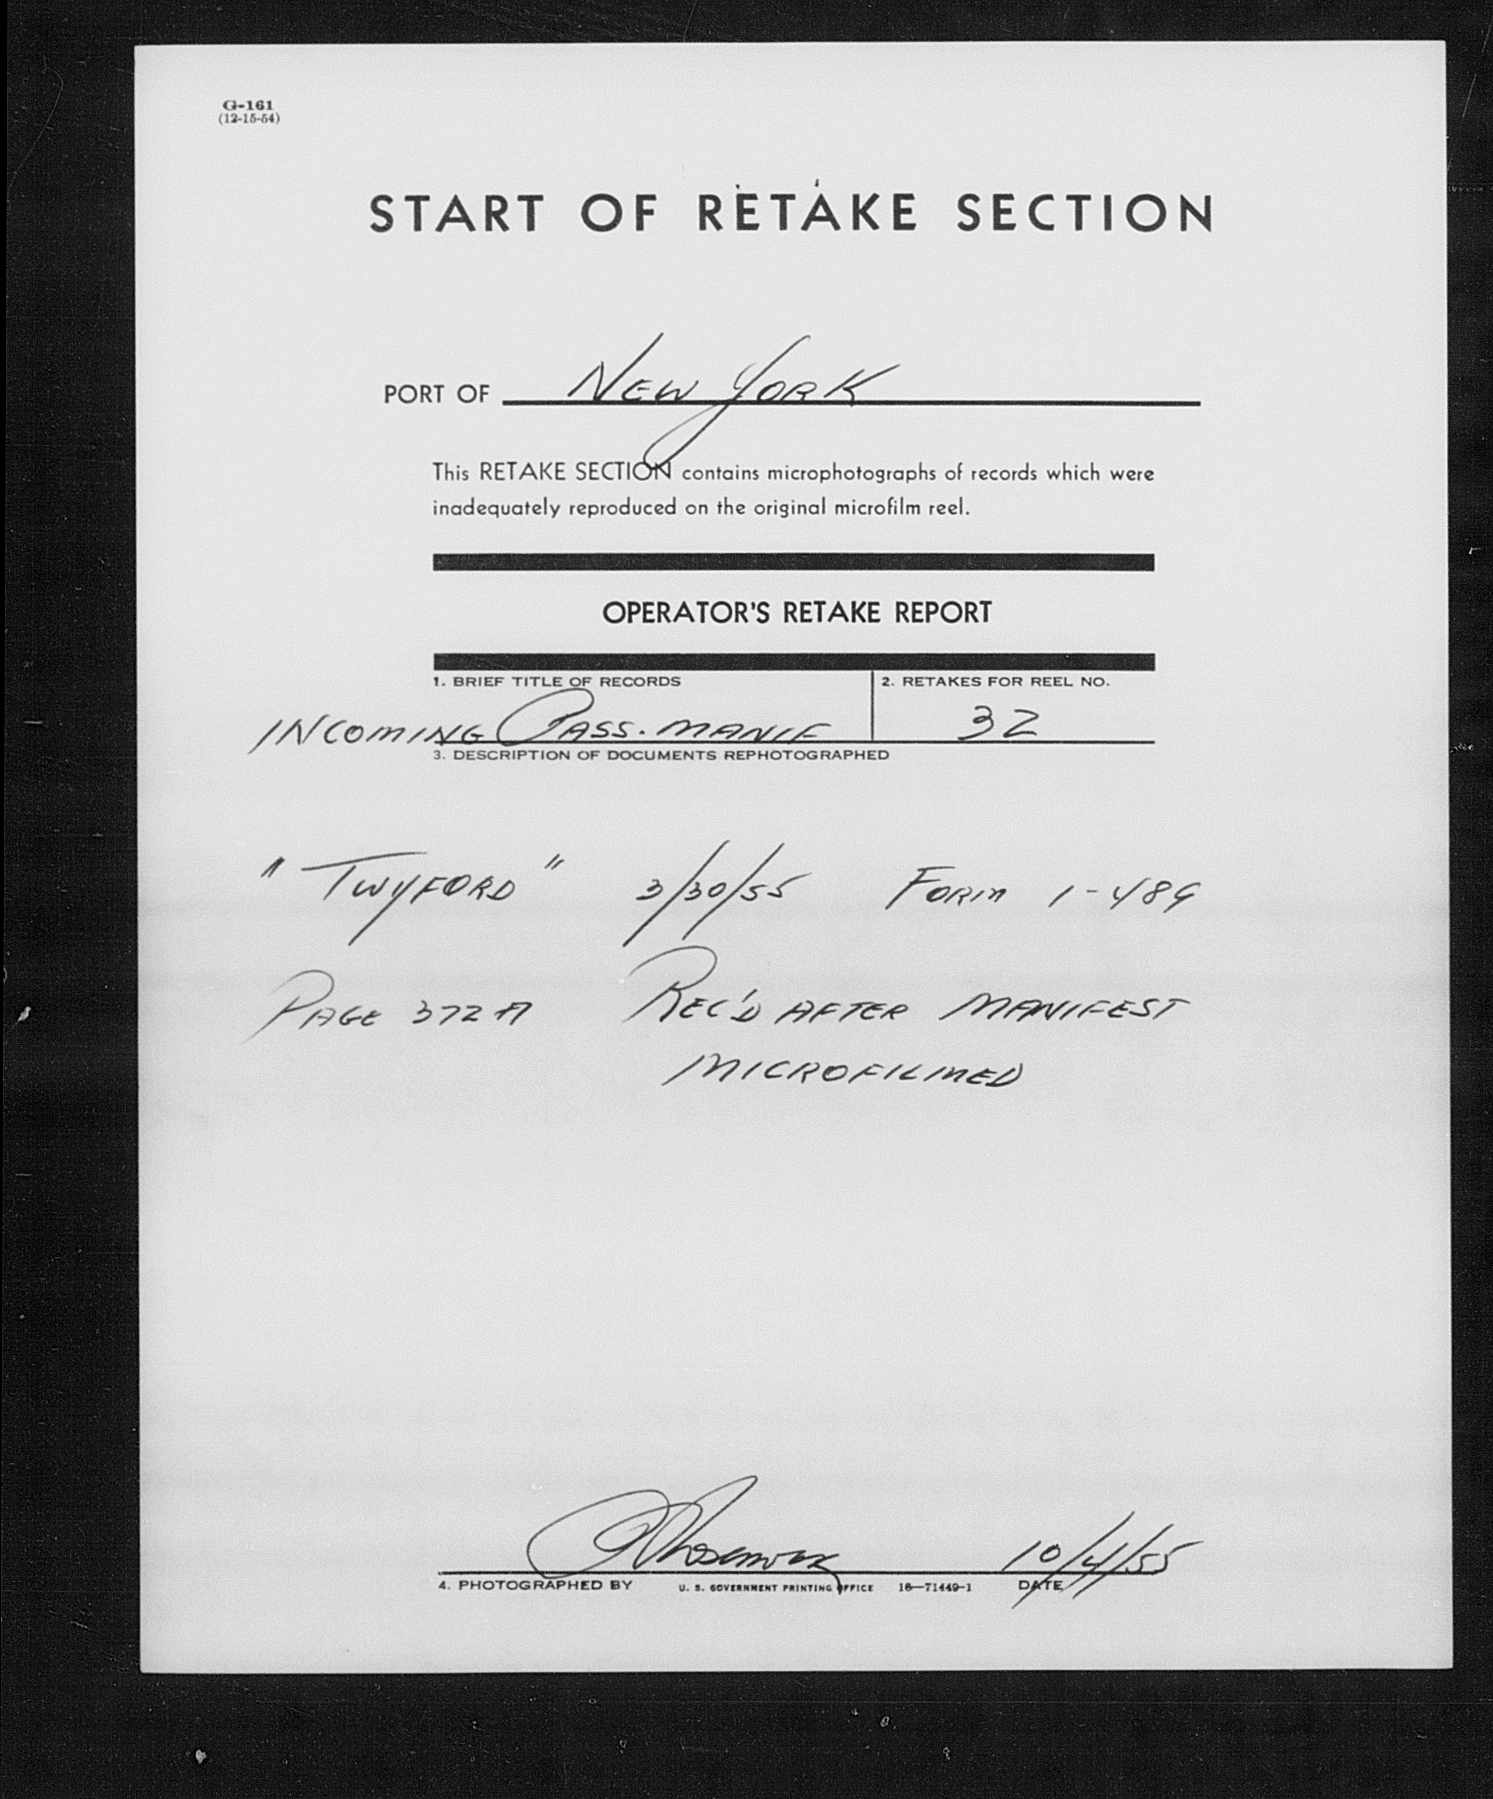 G-161
(12-15-54)
START OF RETAKE SECTION
PORT OF NEW YORK
This RETAKE SECTION contains microphotographs of records which were
inadequately reproduced on the original microfilm reel.
OPERATOR'S RETAKE REPORT
1. BRIEF TITLE OF RECORDS 2. RETAKES FOR REEL NO.
INCOMING PASS. MANIF 32
3. DESCRIPTION OF DOCUMENTS REPHOTOGRAPHED
"TWYFORD" 3/30/55 FORM 1-489
PAGE 372A REC'D AFTER MANIFEST
MICROFILMED
10/4/55
4. PHOTOGRAPHED BY U. S. GOVERNMENT PRINTING OFFICE 16—71449-1 DATE